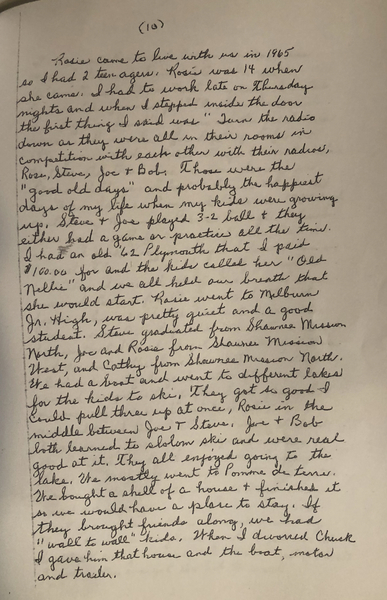 (10)
Rosie came to live with us in 1965
so I had 2 teen agers. Rosie was 14 when
she came. I had to work late on Thursday
nights and when I stepped inside the door
the first thing I said was "Turn the radio
down as they were all in their rooms in
competition with each other with their radios,
Rose, Steve, Joe & Bob. Those were the
"good old days" and probably the happiest
days of my life when my kids were growing
up. Steve & Joe played 3-2 ball & they
either had a game or practice all the time.
I had an old '62 Plymouth that I paid
$100.00 for and the kids called her "Old
Nellie" and we all held our breath that
she would start. Rosie went to Milburn
Jr. High, was pretty quiet and a good
student. Steve graduated from Shawnee Mission
North, Joe and Rosie from Shawnee Mission
West, and Cathy from Shawnee Mission North.
We had a boat and went to different lakes
for the kids to ski. They got so good I
could pull three up at once, Rosie in the
middle between Joe & Steve. Joe & Bob
both learned to slalom ski and were real
good at it. They all enjoyed going to the
lake. We mostly went to Pomme de terre.
We bought a shell of a house & finished it
so we would have a place to stay. If
they brought friends along, we had
"wall to wall" kids. When I divorced Chuck
I gave him that house and the boat, motor
and trailer.